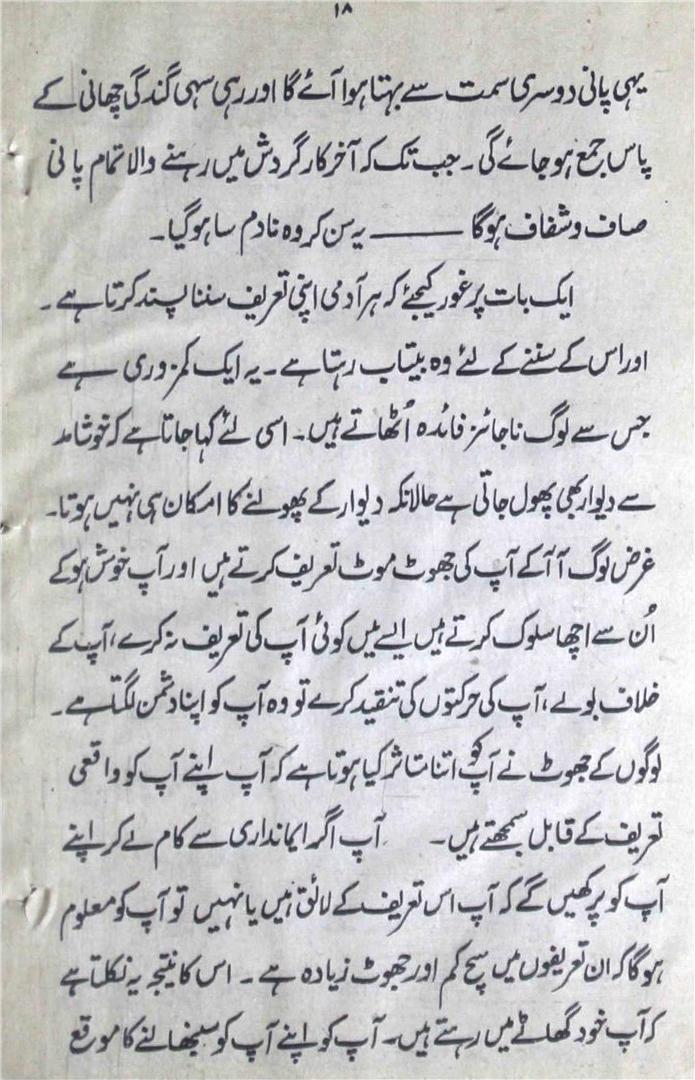 ۱۸
یہی پانی دوسری سمت سے بہتا ہوا آئے گا اور رہی سہی گندگی چھانی کے
پاس جمع ہو جائے گی۔ جب تک کہ آخر کار گردش میں رہنے والا تمام پانی
صاف و شفاف ہوگا ——— یہ سن کر وہ نادم سا ہو گیا۔
ایک بات پر غور کیجئے کہ ہر آدمی اپنی تعریف سننا پسند کرتا ہے۔
اور اس کے سننے کے لئے وہ بیتاب رہتا ہے۔ یہ ایک کمزوری ہے
جس سے لوگ ناجائز فائدہ اُٹھاتے ہیں۔ اسی لئے کہا جاتا ہے کہ خوشامد
سے دیوار بھی پھول جاتی ہے حالانکہ دیوار کے پھولنے کا امکان ہی نہیں ہوتا۔
غرض لوگ آ آ کے آپ کی جھوٹ موٹ تعریف کرتے ہیں اور آپ خوش ہو کے
اُن سے اچھا سلوک کرتے ہیں ایسے میں کوئی آپ کی تعریف نہ کرے، آپ کے
خلاف بولے، آپ کی حرکتوں کی تنقید کرے تو وہ آپ کو اپنا دشمن لگتا ہے۔
لوگوں کے جھوٹ نے آپ کو اتنا متاثر کیا ہوتا ہے کہ آپ اپنے آپ کو واقعی
تعریف کے قابل سمجھتے ہیں۔ آپ اگر ایمانداری سے کام لے کر اپنے
آپ کو پرکھیں گے کہ آپ اس تعریف کے لائق ہیں یا نہیں تو آپ کو معلوم
ہوگا کہ ان تعریفوں میں سچ کم اور جھوٹ زیادہ ہے۔ اس کا نتیجہ یہ نکلتا ہے
کہ آپ خود گھاٹے میں رہتے ہیں۔ آپ کو اپنے آپ کو سنبھالنے کا موقع